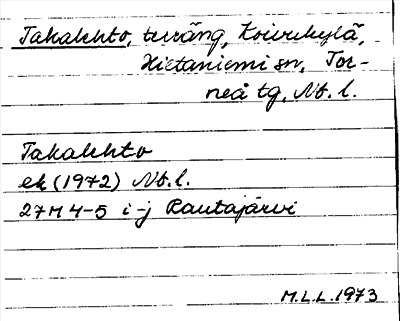 Takalehto, teräng, Koivukylä,
Hietaniemi sn, Tor-
neå tg, Nb. l.
Takalehto
ek (1972) Nb. l.
27M 4-5 i-j Rautajärvi
M.L.L. 1973